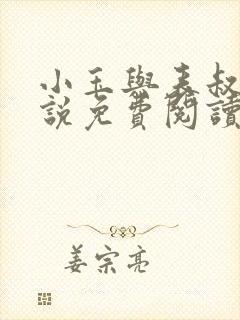 小玉與表叔
說免費閱讀
姜宗亮